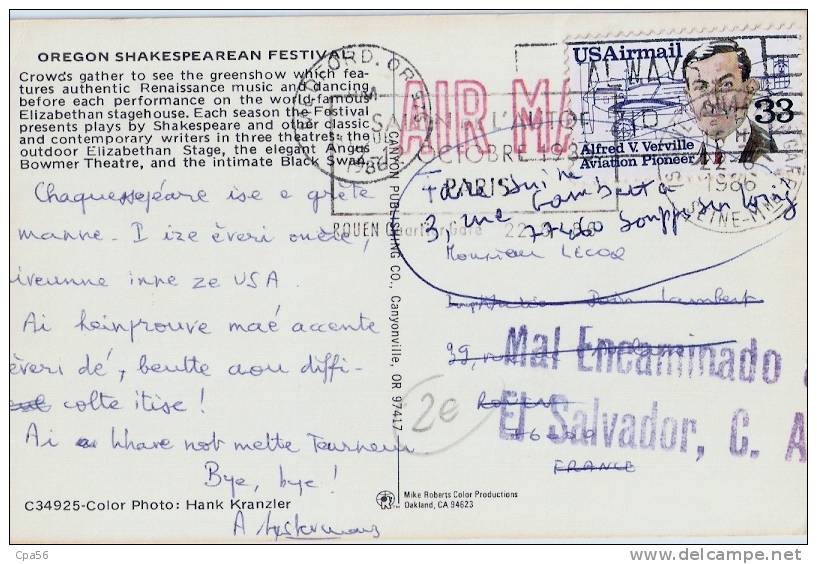 OREGON SHAKESPEAREAN FESTIVAL
Crowds gather to see the greenshow which fea-
tures authentic Renaissance music and dancing
before each performance on the world-famous
Elizabethan stagehouse. Each season the Festival
presents plays by Shakespeare and other classic
and contemporary writers in three theatres: the
outdoor Elizabethan Stage, the elegant Angus
Bowmer Theatre, and the intimate Black Swan.
Chaquessejéare ise e grète
manne. I ize èveri ouère,
iveunne inne ze USA.
Ai heinprouve maé accente
èveri dé, beutte aou diffi-
colte itise!
Ai khave not mette Teurneur
Bye, bye!
C34925-Color Photo: Hank Kranzler
CANYON PUBLISHING CO., Canyonville, OR 97417
Mike Roberts Color Productions
Oakland, CA 94623
AIR MA
USAirmail
33
Alfred V. Verville
Aviation Pioneer
MEDFORD. OR
1986
ALWAY
SALON DE L'AUTO
OCTOBRE 198
PARIS
ROUEN Gare
1986
SEINE-M
Faire suivre
3, rue Gambetta
77460 Souppes sur Loing
Monsieur LECOQ
39, rue
ROUEN
FRANCE
2e
Mal Encaminado a
El Salvador, C. A
Cpa56
delcampe.net